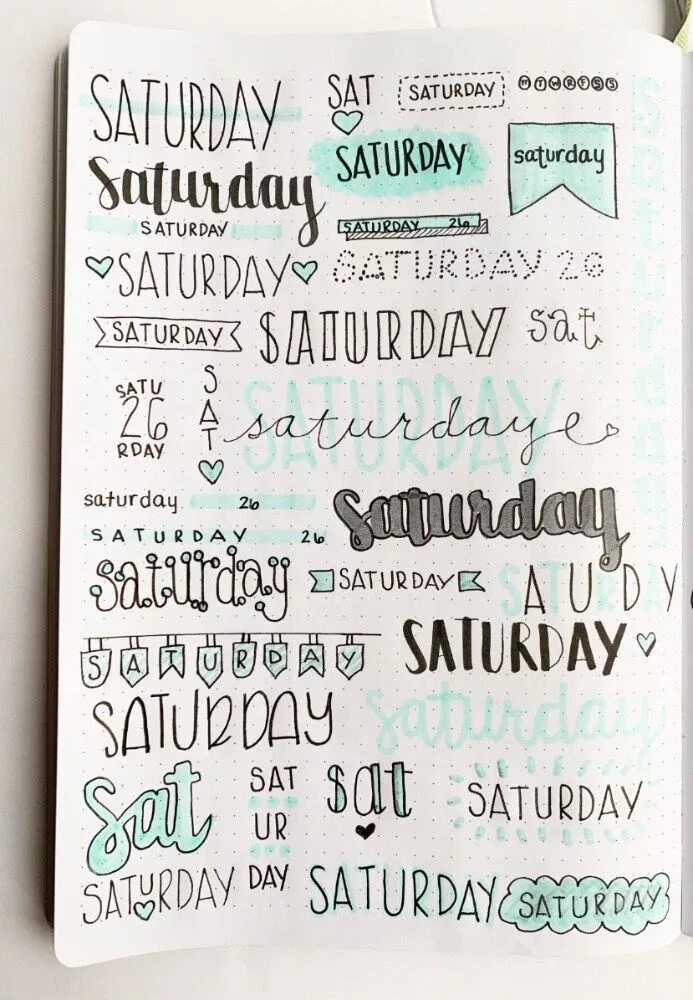 SATURDAY
SAT
SATURDAY
MTWRFSS
saturday
SATURDAY
saturday
SATURDAY
SATURDAY 26
SATURDAY
SATURDAY 26
SATURDAY
SATURDAY
sat
SATU
26
RDAY
SAT
SATURDAY
saturdaye
saturday
saturday 26
saturday
SATURDAY 26
saturday
SATURDAY
SATURDAY
SATURDAY
SATURDAY
SATURDAY
saturday
sat
SAT
UR
DAY
sat
SATURDAY
SATURDAY
SATURDAY
SATURDAY